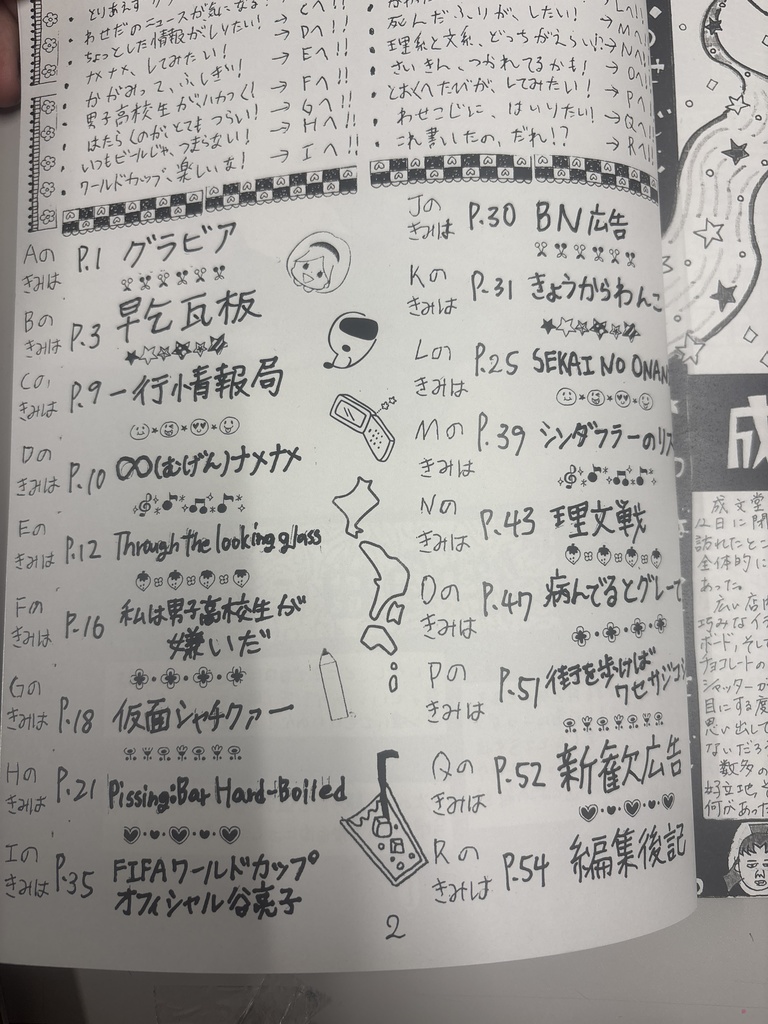 とりあえず
わせだのニュースが気になる! → Cへ!!
ちょっとした情報がしりたい! → Dへ!!
ナメナメ、してみたい! → Eへ!!
かがみって、ふしぎ! → Fへ!!
男子高校生がハカつく! → Gへ!!
はたらくのが、とてもつらい! → Hへ!!
いつもビールじゃ、つまらない!
ワールドカップ、楽しいな! → Iへ!!
死んだふりが、したい! → Mへ!!
理系と文系、どっちがえらい!? → Nへ!!
さいきん、つかれてるかも! → Oへ!!
とおくへたびが、してみたい! → Pへ!!
わせこじに、はいりたい! → Qへ!!
これ書いたの、だれ!? → Rへ!!
Aのきみは P.1 グラビア
Bのきみは P.3 早乞瓦板
Cのきみは P.9 一行情報局
Dのきみは P.10 ∞(むげん)ナメナメ
Eのきみは P.12 Through the looking glass
Fのきみは P.16 私は男子高校生が
嫌いだ
Gのきみは P.18 仮面シャチクァー
Hのきみは P.21 Pissing:Bar Hard-Boiled
Iのきみは P.35 FIFAワールドカップ
オフィシャル谷亮子
Jのきみは P.30 BN広告
Kのきみは P.31 きょうからわんこ
Lのきみは P.25 SEKAI NO ONAN
Mのきみは P.39 シンダフラーのリス
Nのきみは P.43 理文戦
Oのきみは P.47 病んでるとグレーて
Pのきみは P.51 街を歩けば
ワセサジコシ
Qのきみは P.52 新歓広告
Rのきみは P.54 編集後記
2
成
成文堂
12日に閉
訪れたとこ
全体的に
あった。
広い店内
巧みなイラ
ボード、そして
チョコレートの
シャッターが
目にする度
思い出して
ないだろう
数多の
好立地、そ
何があった